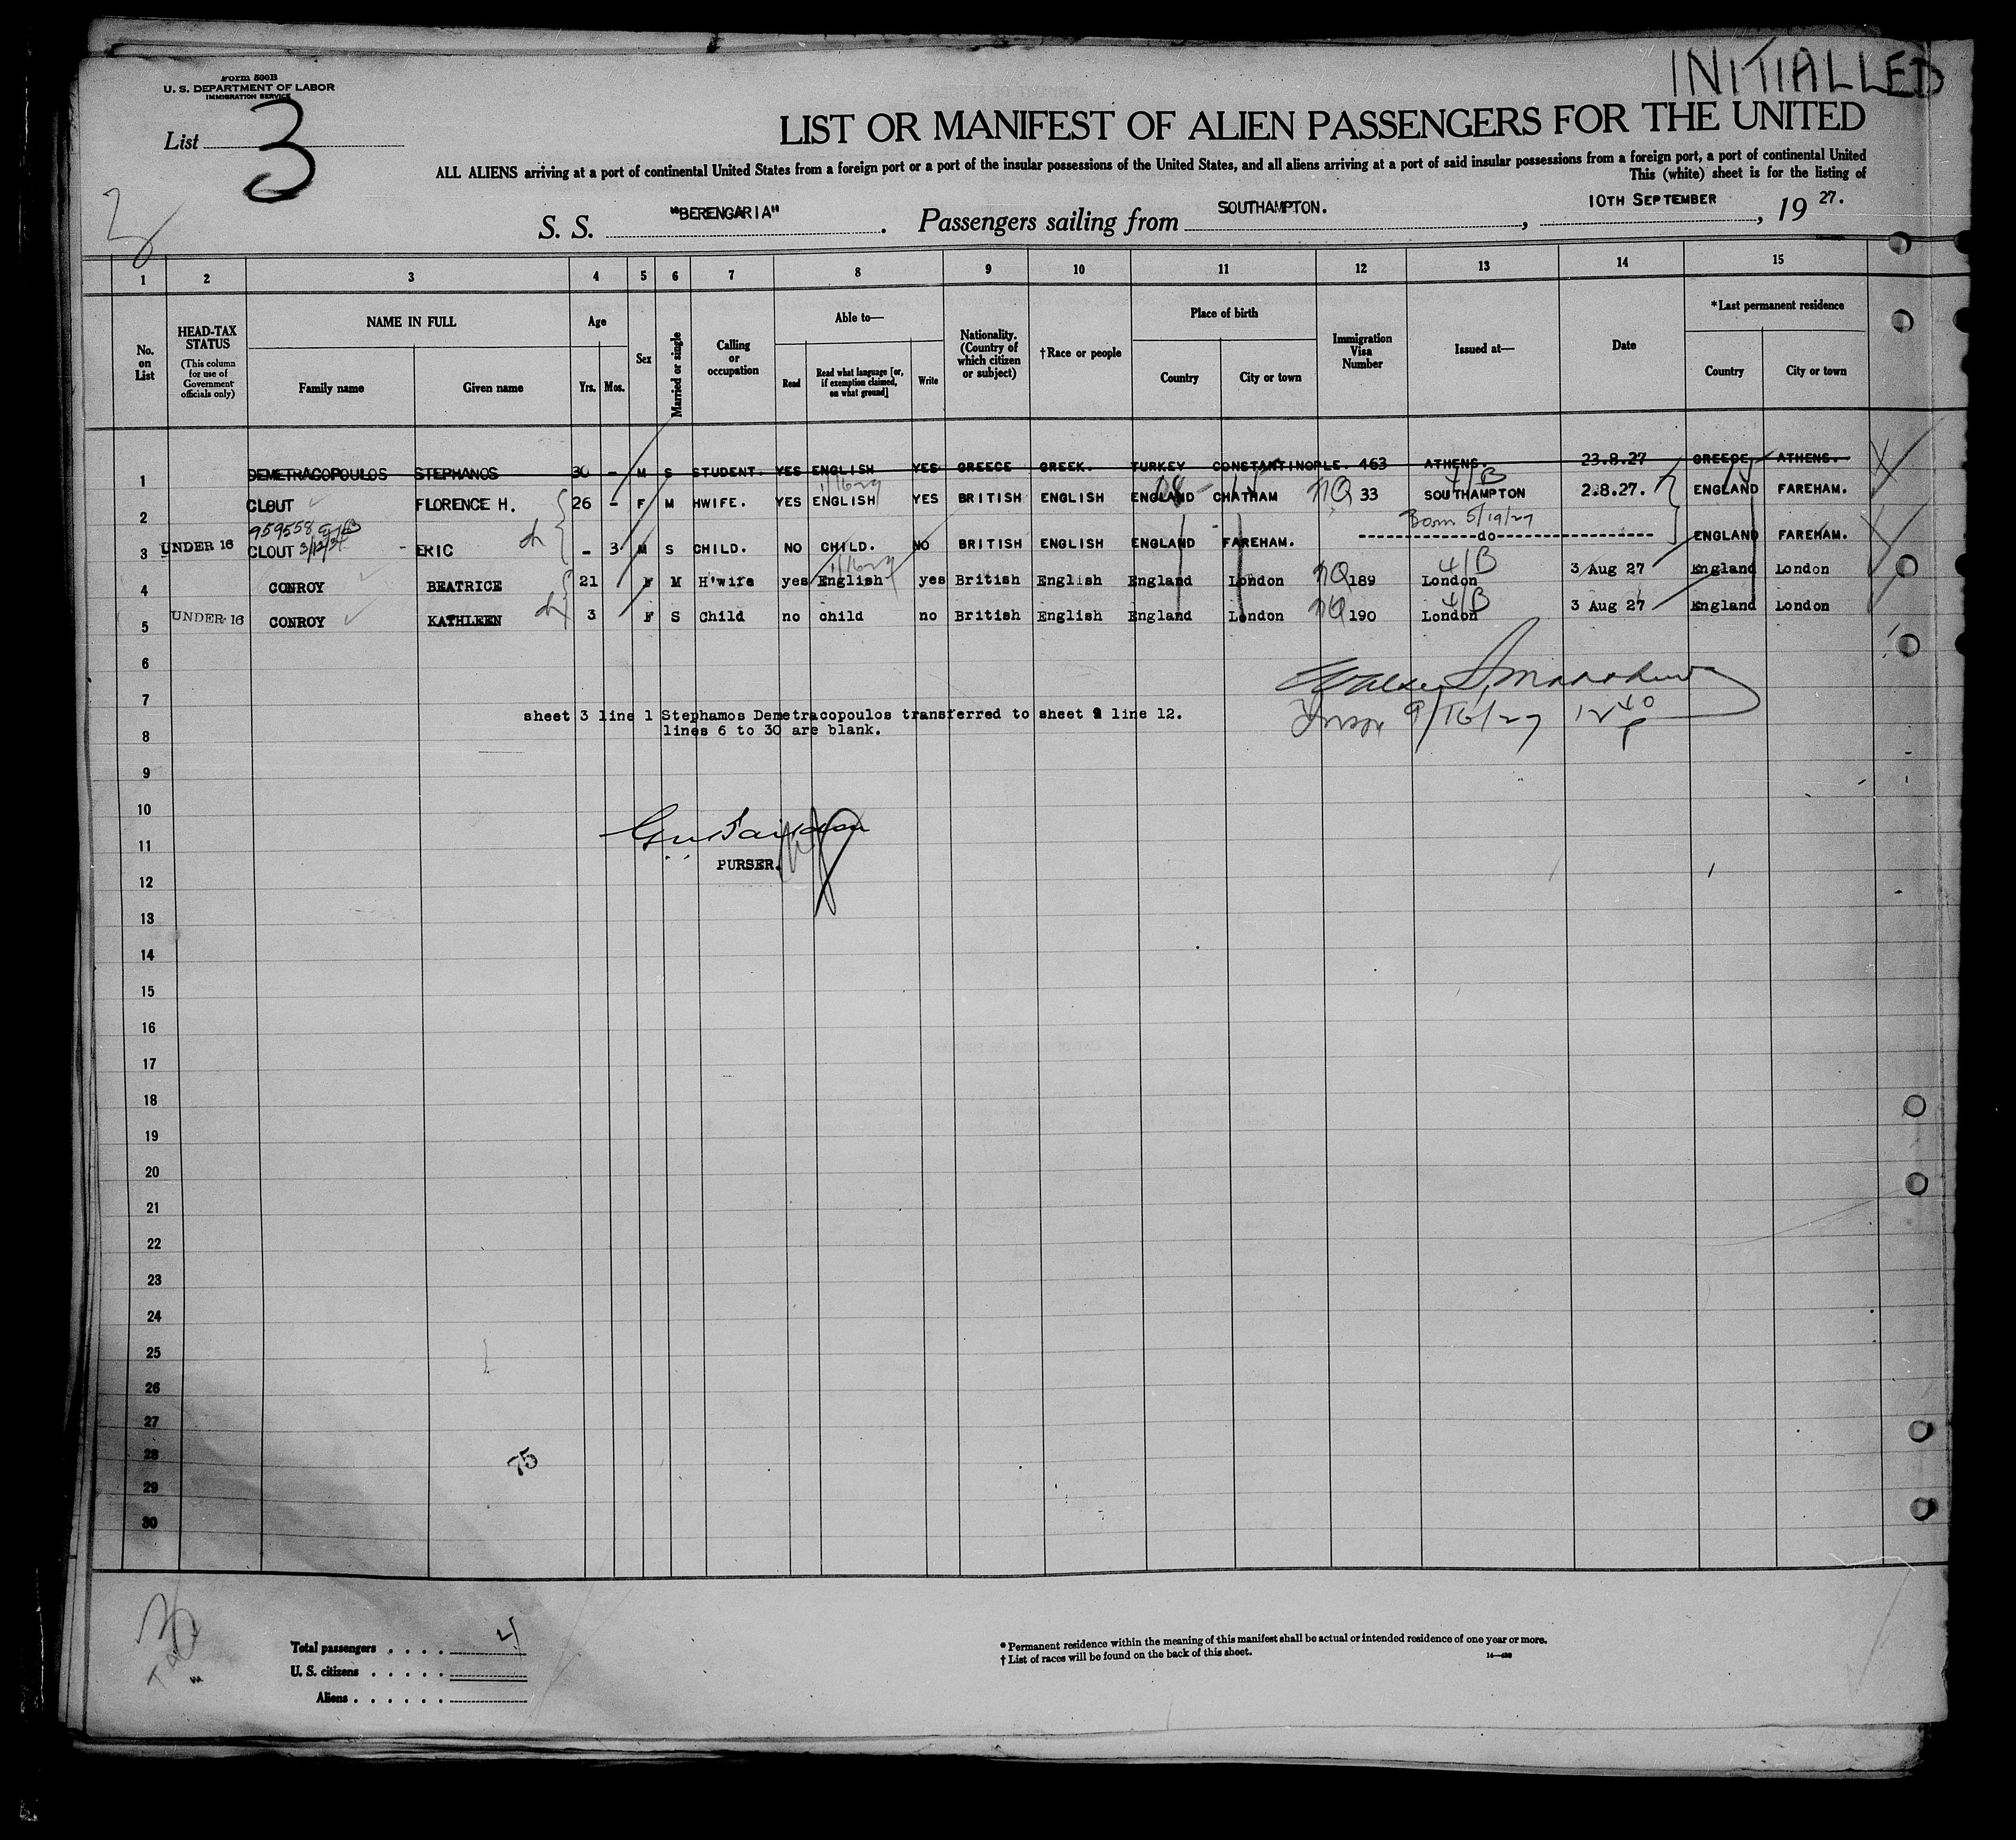 INITIALLED
Form 500B
U. S. DEPARTMENT OF LABOR
IMMIGRATION SERVICE
List 3
LIST OR MANIFEST OF ALIEN PASSENGERS FOR THE UNITED
ALL ALIENS arriving at a port of continental United States from a foreign port or a port of the insular possessions of the United States, and all aliens arriving at a port of said insular possessions from a foreign port, a port of continental United
This (white) sheet is for the listing of
S. S. "BERENGARIA". Passengers sailing from SOUTHAMPTON., 10TH SEPTEMBER, 19 27.
1 2 3 4 5 6 7 8 9 10 11 12 13 14 15
No. on List
HEAD-TAX STATUS
(This column for use of Government officials only)
NAME IN FULL
Family name Given name
Age
Yrs. Mos.
Sex
Married or single
Calling or occupation
Able to—
Read Read what language [or, if exemption claimed, on what ground] Write
Nationality. (Country of which citizen or subject)
†Race or people
Place of birth
Country City or town
Immigration Visa Number
Issued at—
Date
*Last permanent residence
Country City or town
1 DEMETRACOPOULOS STEPHANOS 30 - M S STUDENT. YES ENGLISH YES GREECE GREEK. TURKEY CONSTANTINOPLE. 463 ATHENS. 23.8.27 GREECE ATHENS.
4/B
2 CLOUT FLORENCE H. 26 - F M HWIFE. YES ENGLISH YES BRITISH ENGLISH ENGLAND CHATHAM NQ 33 SOUTHAMPTON 2.8.27. ENGLAND FAREHAM.
959558
3/12/31
Born 5/19/27
3 UNDER 16 CLOUT - ERIC ch - 3 M S CHILD. NO CHILD. NO BRITISH ENGLISH ENGLAND FAREHAM. -do- ENGLAND FAREHAM.
4/B
4 CONROY BEATRICE 21 F M H'wife yes English yes British English England London NQ 189 London 3 Aug 27 England London
4/B
5 UNDER 16 CONROY KATHLEEN ch 3 F S Child no child no British English England London NQ 190 London 3 Aug 27 England London
6
7
sheet 3 line 1 Stephamos Demetracopoulos transferred to sheet 2 line 12.
9/16/27 12 40 P
8
lines 6 to 30 are blank.
9
10
11
PURSER.
12
13
14
15
16
17
18
19
20
21
22
23
24
25
26
27
28
75
29
30
Total passengers . . . . 4
U. S. citizens . . . . .
Aliens . . . . . .
* Permanent residence within the meaning of this manifest shall be actual or intended residence of one year or more.
† List of races will be found on the back of this sheet.